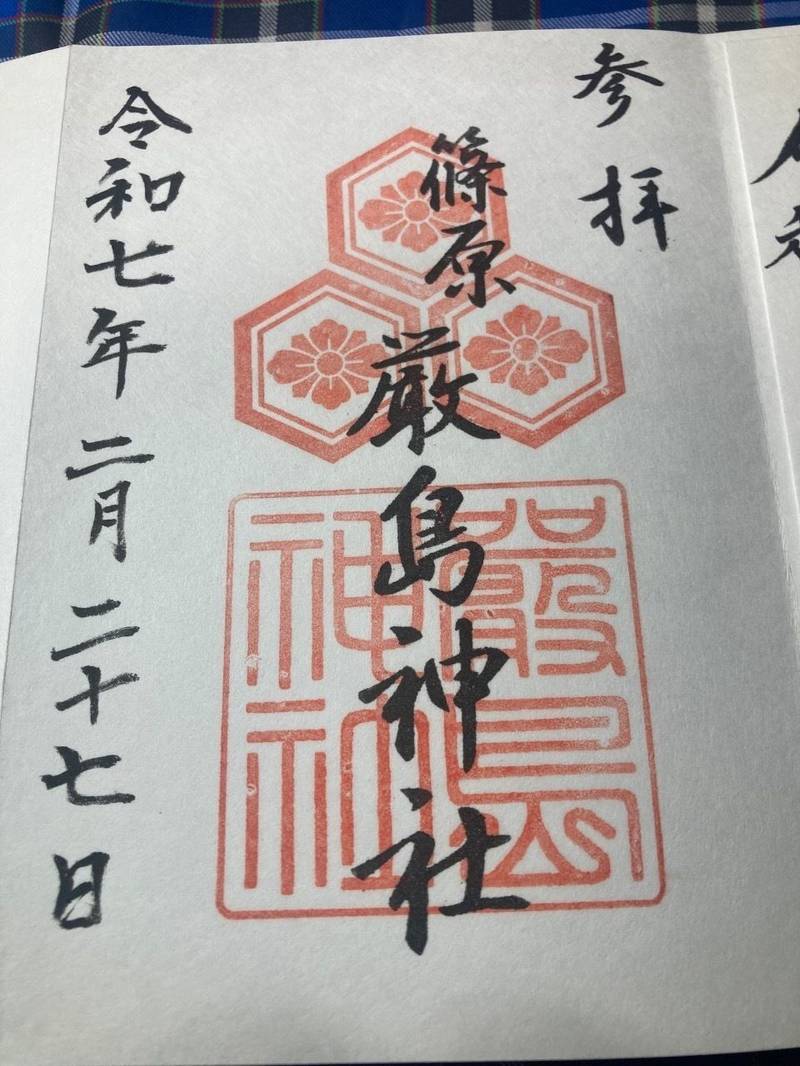 参拝
篠原
厳島神社
嚴島
神社
令和七年二月二十七日